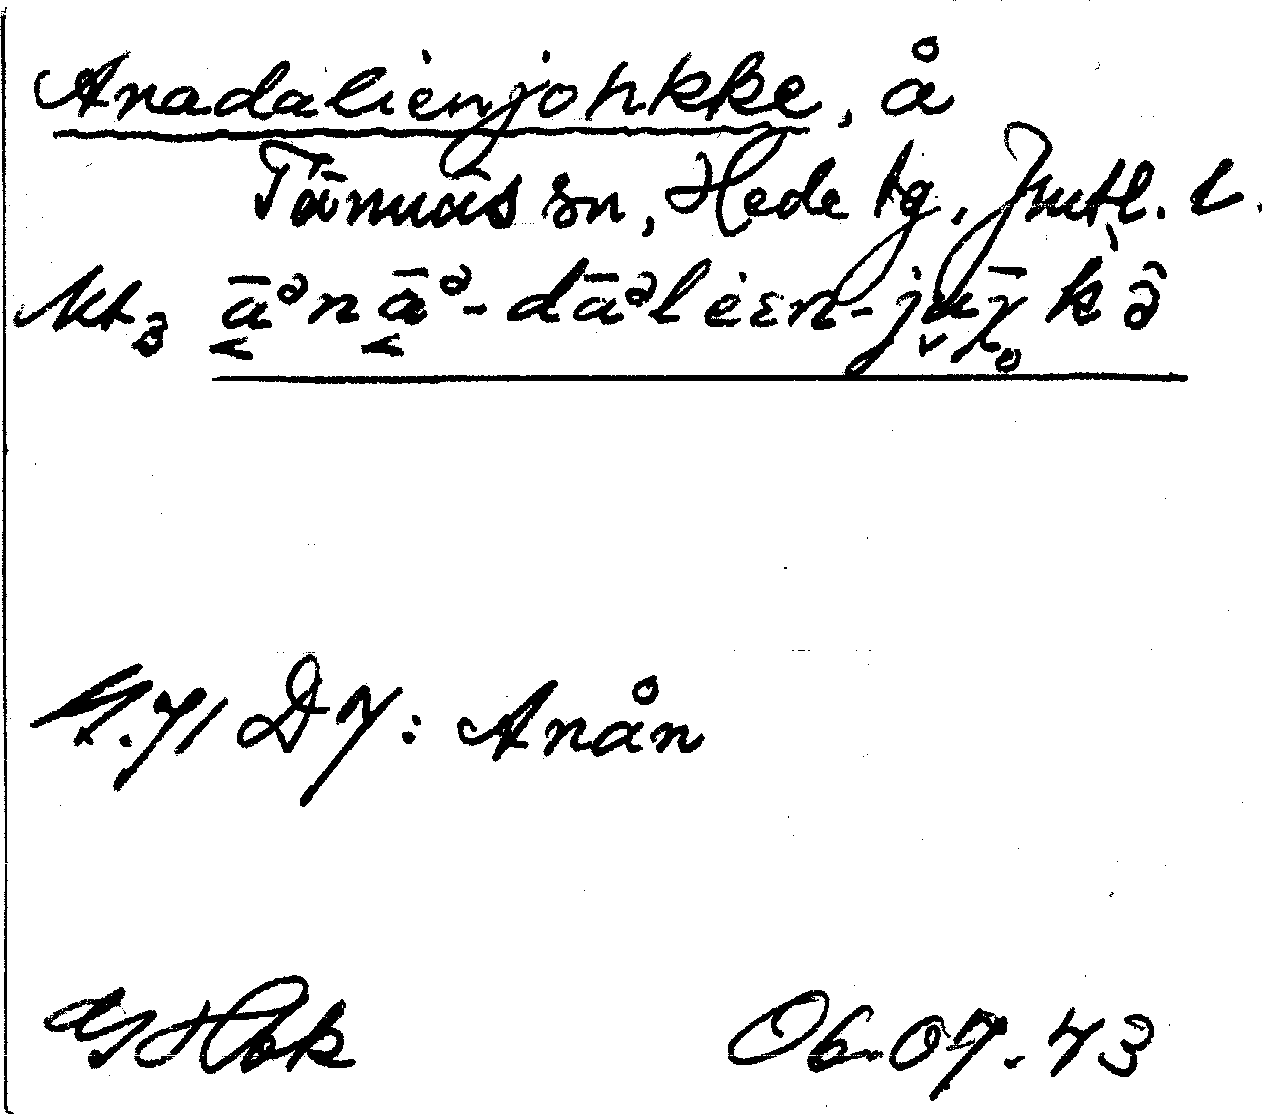 Anadalienjohkke, å
Tännäs sn, Hede tg, Jmtl. l.
āᵊnāᵊ-dāᵊlėεn-juχ̄kə̑
DY: Anån
GHbk 06.07.73